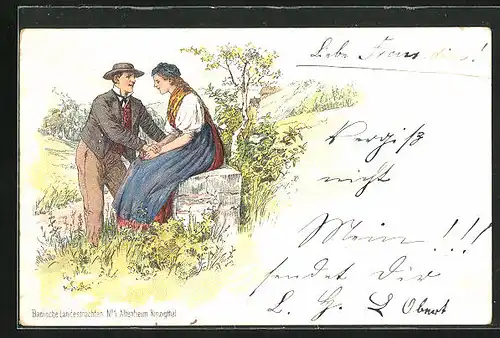 Liebe Freundin!
Vergiß
nicht
Mein !!!
sendet Dir
L. H. L Obert
Badische Landestrachten. No. 1. Altenheim Kinzigthal